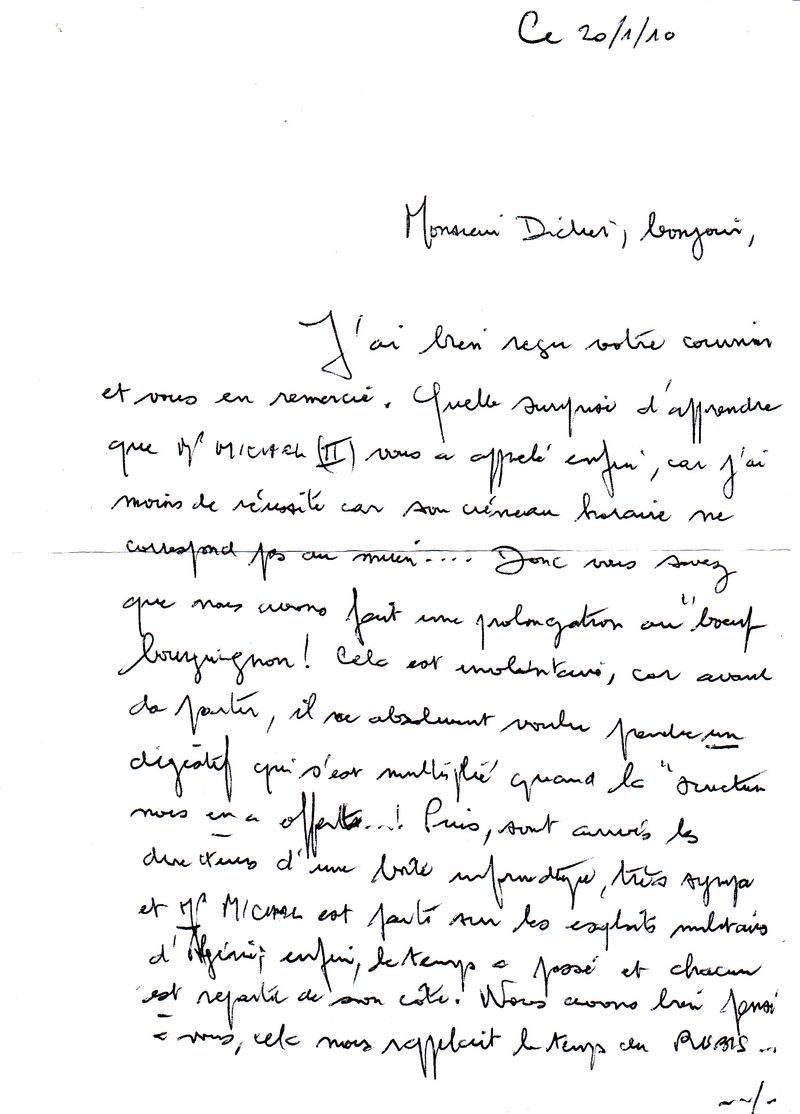 Ce 20/1/10
Monsieur Dicher, bonjour,
J'ai bien reçu votre courrier
et vous en remercie. Quelle surprise d'apprendre
que Mr MICHAEL (II) vous a appelé enfin, car j'ai
moins de réussite car son créneau horaire ne
correspond pas au mien.... Donc vous savez
que nous avons fait une prolongation au "bœuf
bourguignon! Cela est involontaire, car avant
de partir, il a absolument voulu prendre un
digestif qui s'est multiplié quand la
nous en a offerts...! Puis, sont arrivés les
directeurs d'une boîte informatique, très sympa
et Mr MICHAEL est parti sur les exploits militaires
d'Algérie; enfin, le temps a passé et chacun
est reparti de son côté. Nous avons bien pensé
à vous, cela nous rappelait le temps du RUBIS...
--/-